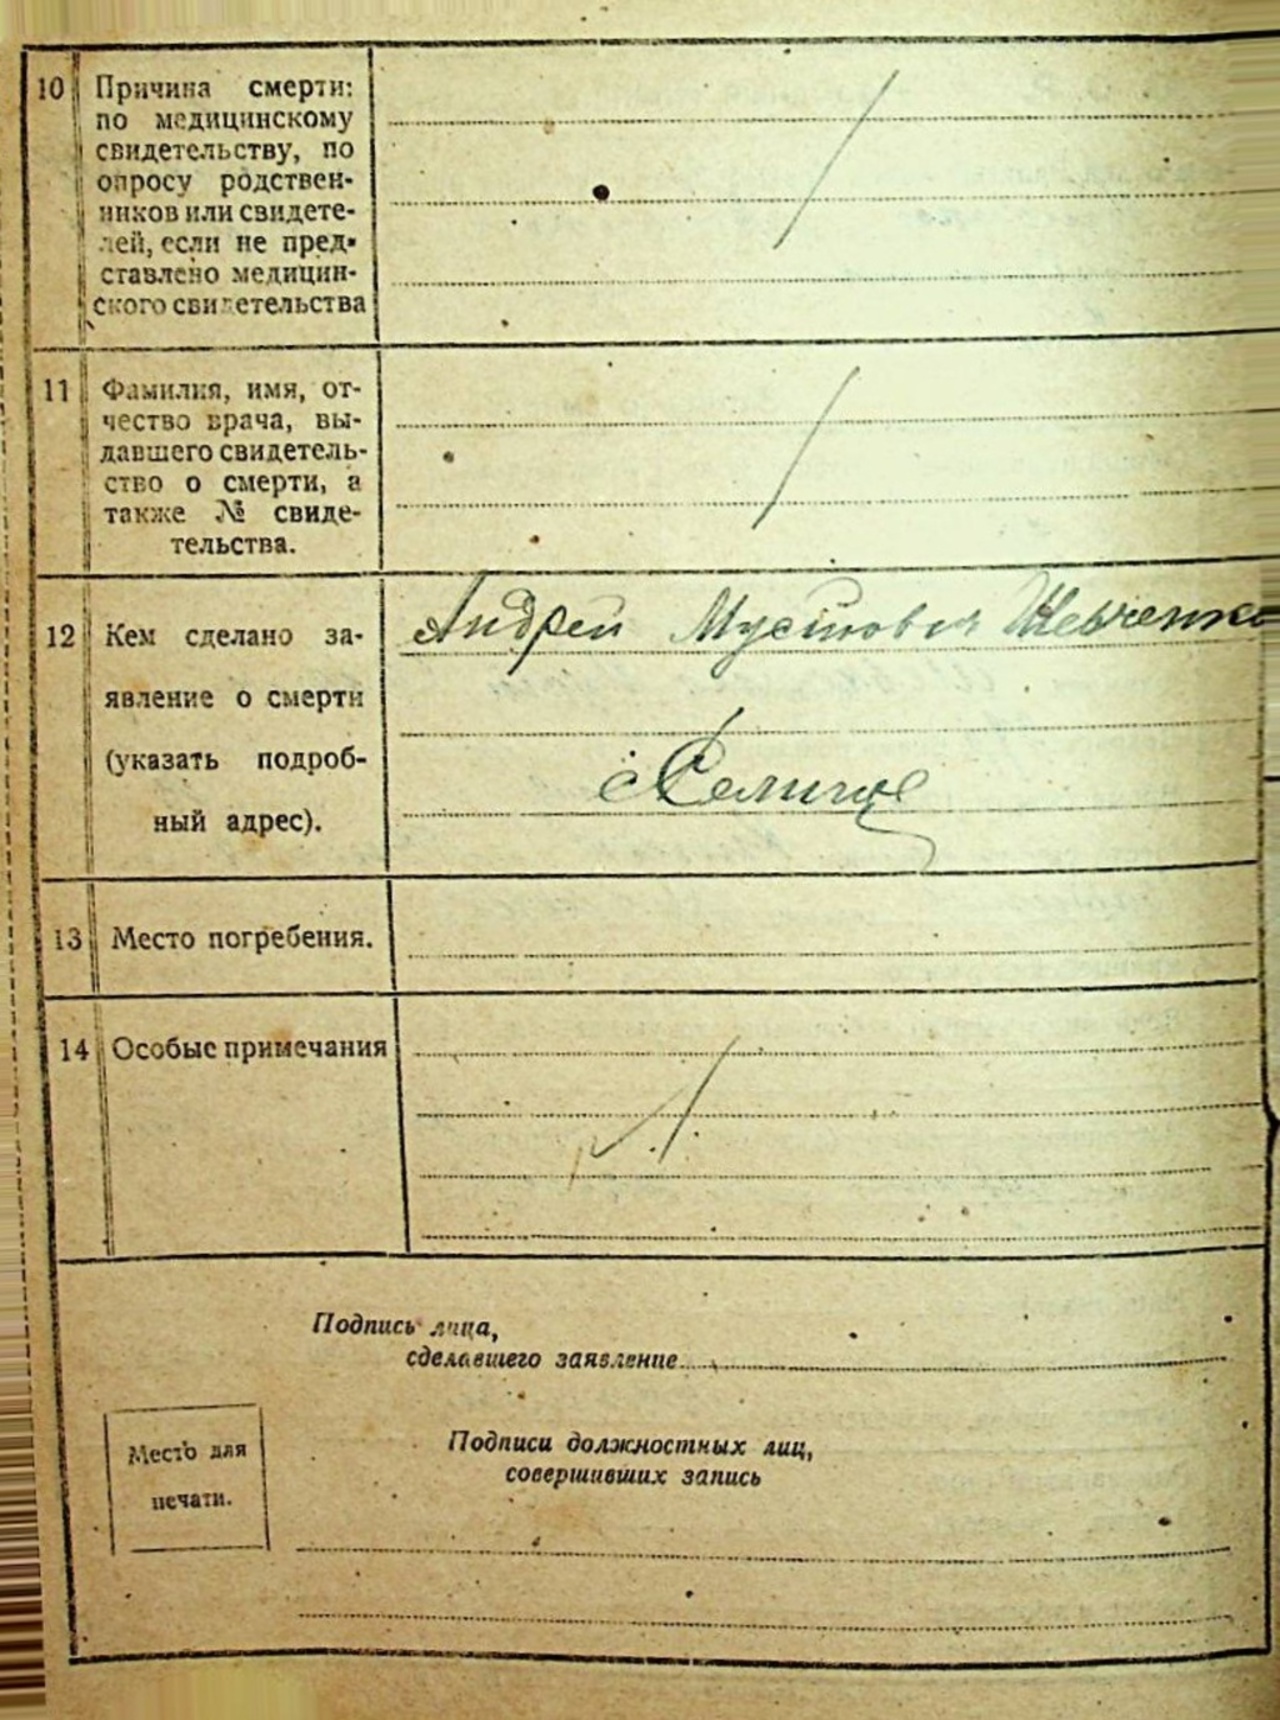 10 Причина смерти:
по медицинскому
свидетельству, по
опросу родствен-
ников или свидете-
лей, если не пред-
ставлено медицин-
ского свидетельства
11 Фамилия, имя, от-
чество врача, вы-
давшего свидетель-
ство о смерти, а
также № свиде-
тельства.
12 Кем сделано за-
явление о смерти
(указать подроб-
ный адрес).
Андрей Шевченко
13 Место погребения.
14 Особые примечания
Подпись лица,
сделавшего заявление
Подписи должностных лиц,
совершивших запись
Место для
печати.